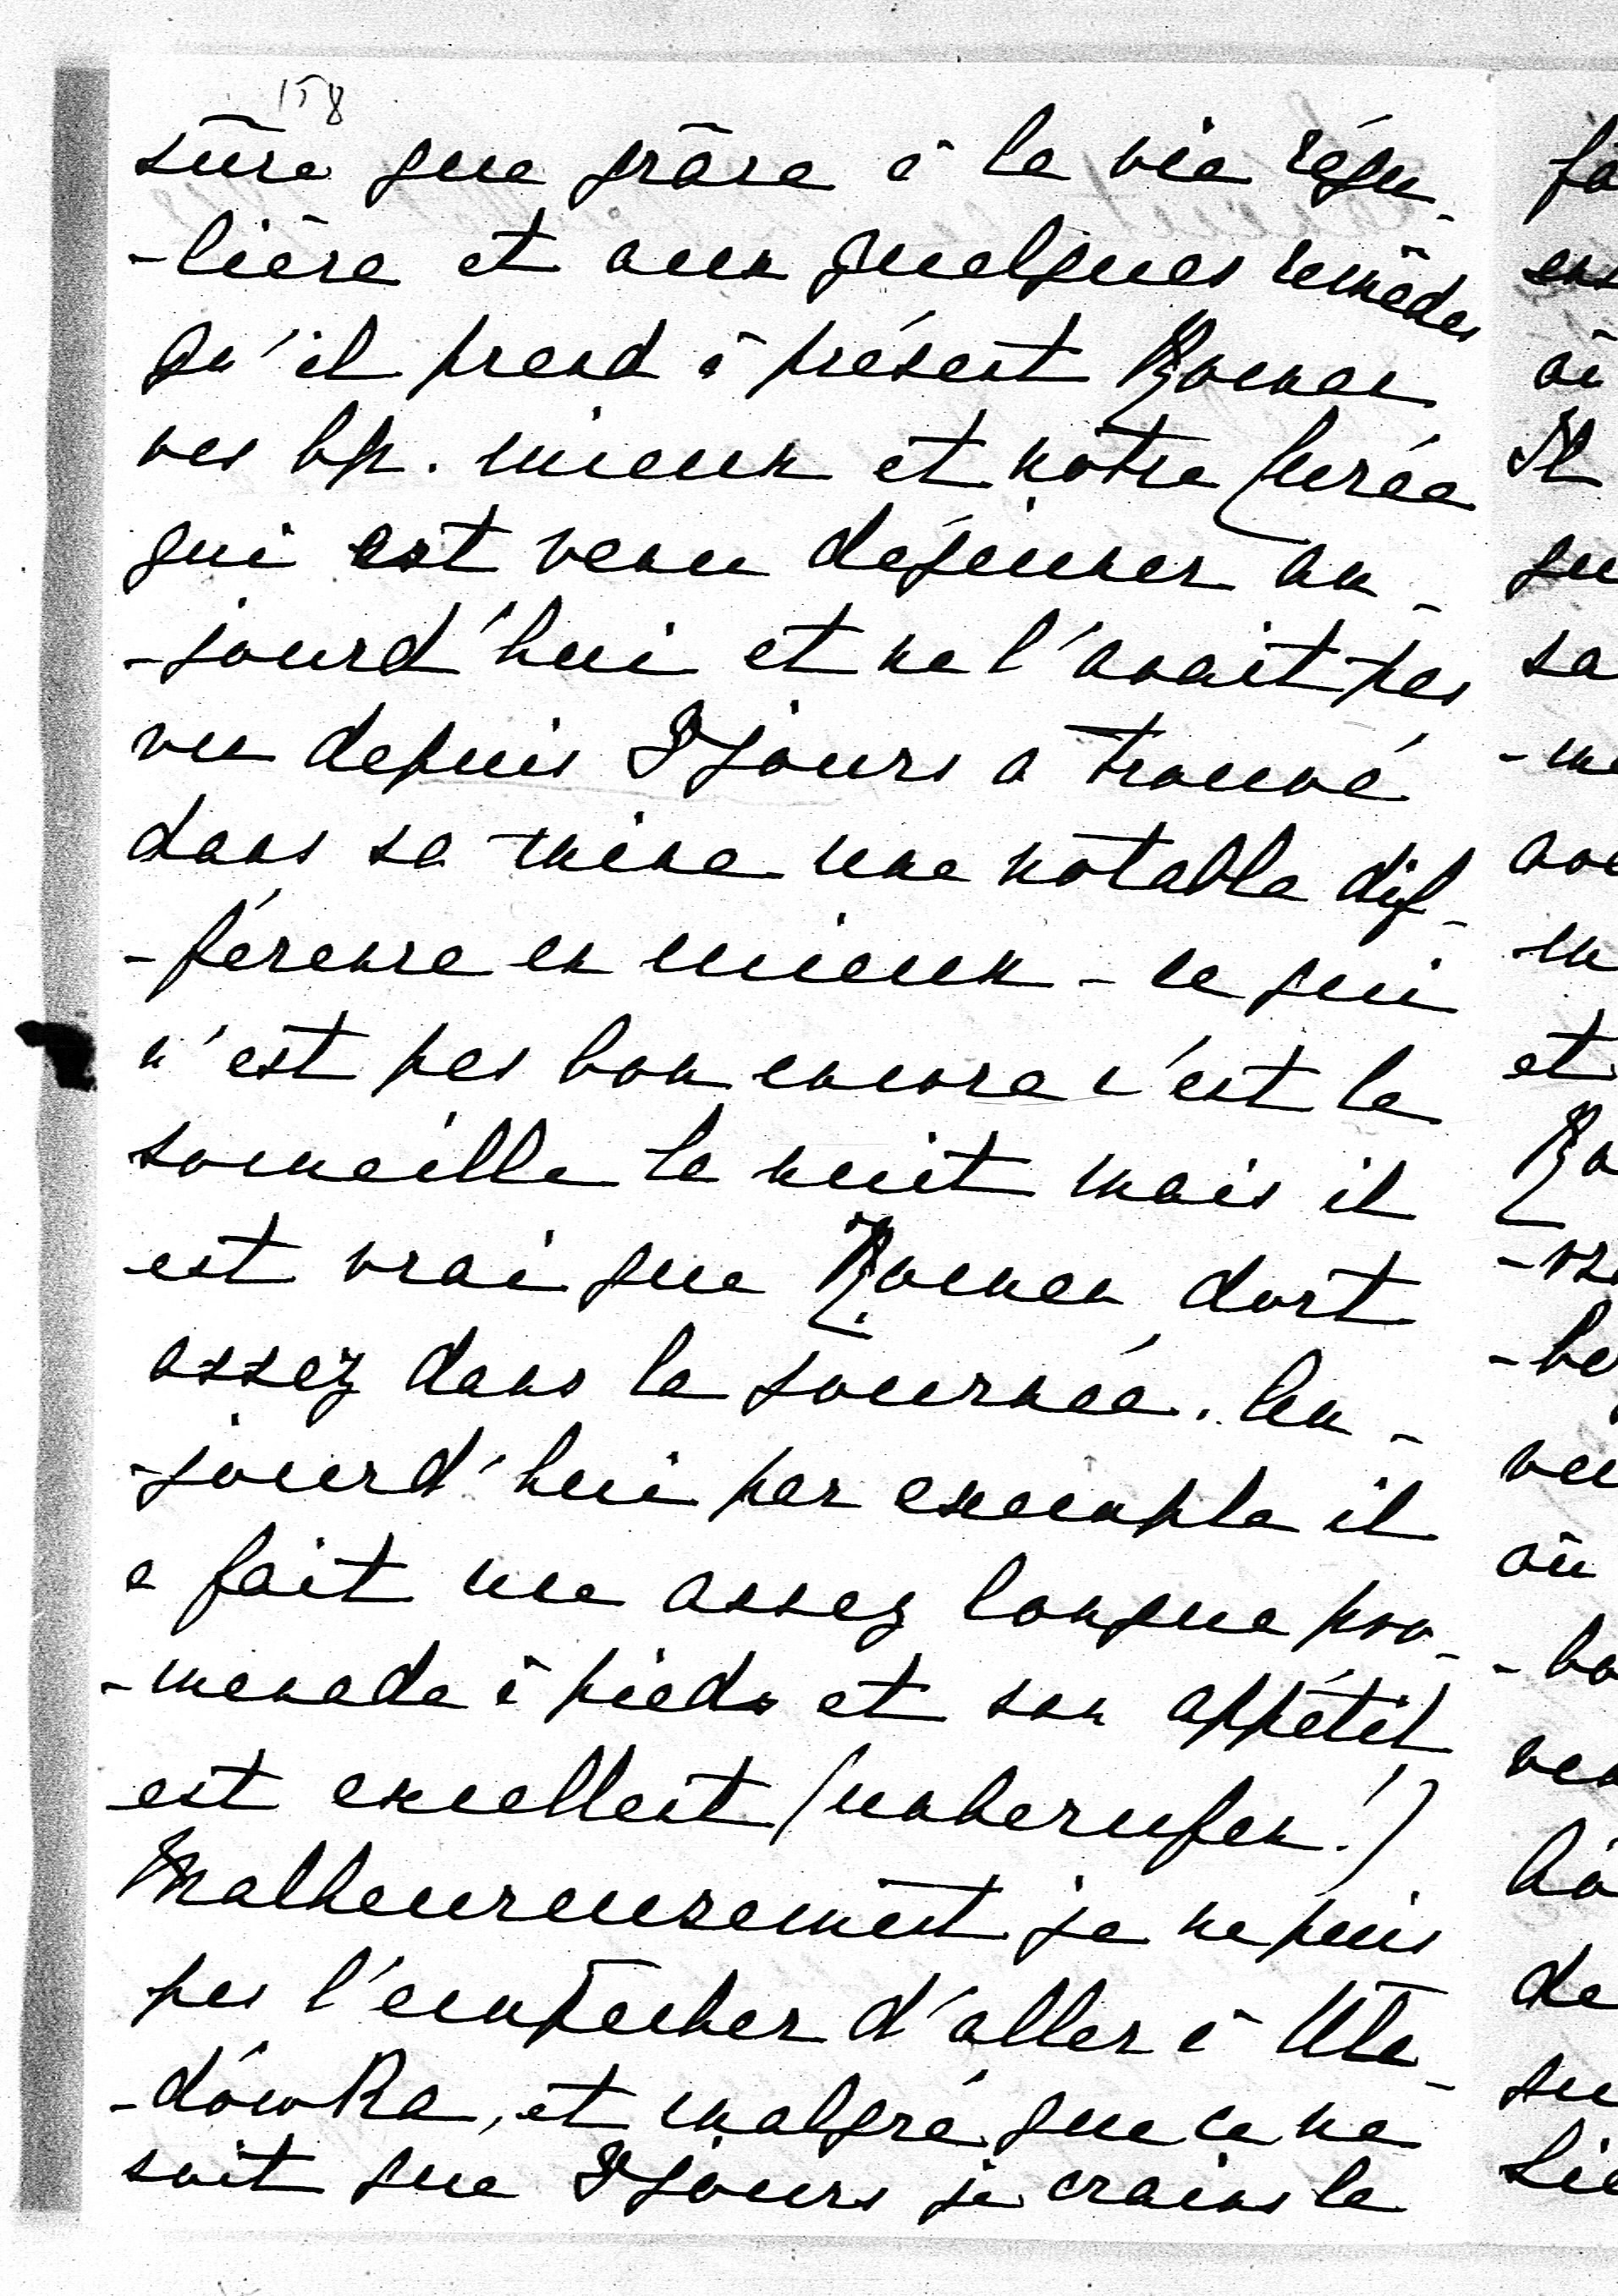 158
sûre que grâce à la vie régu-
-lière et aux quelques remèdes
qu'il prend à présent Roman
va bp. mieux et notre Curée
qui est venu déjeuner au-
-jourd'hui et ne l'avait pas
vu depuis 8 jours a trouvé
dans sa mine une notable dif-
-férence en mieux - ce qui
n'est pas bon encore c'est le
someille la nuit mais il
est vrai que Roman dort
assez dans la journée. Au-
-jourd'hui par exemple il
a fait une assez longue pro-
-menade à pieds et son appétit
est excellent (unberufen!)
Malheureusement je ne puis
pas l'empêcher d'aller à Uła-
-dówka, et malgré que ce ne
soit que 8 jours je crains le
fa
ens
où
Il
qu
sa
-me
avo
-m
et
Ro
-vr
-be
veu
où
-bo
ven
ha
de
su
Lie